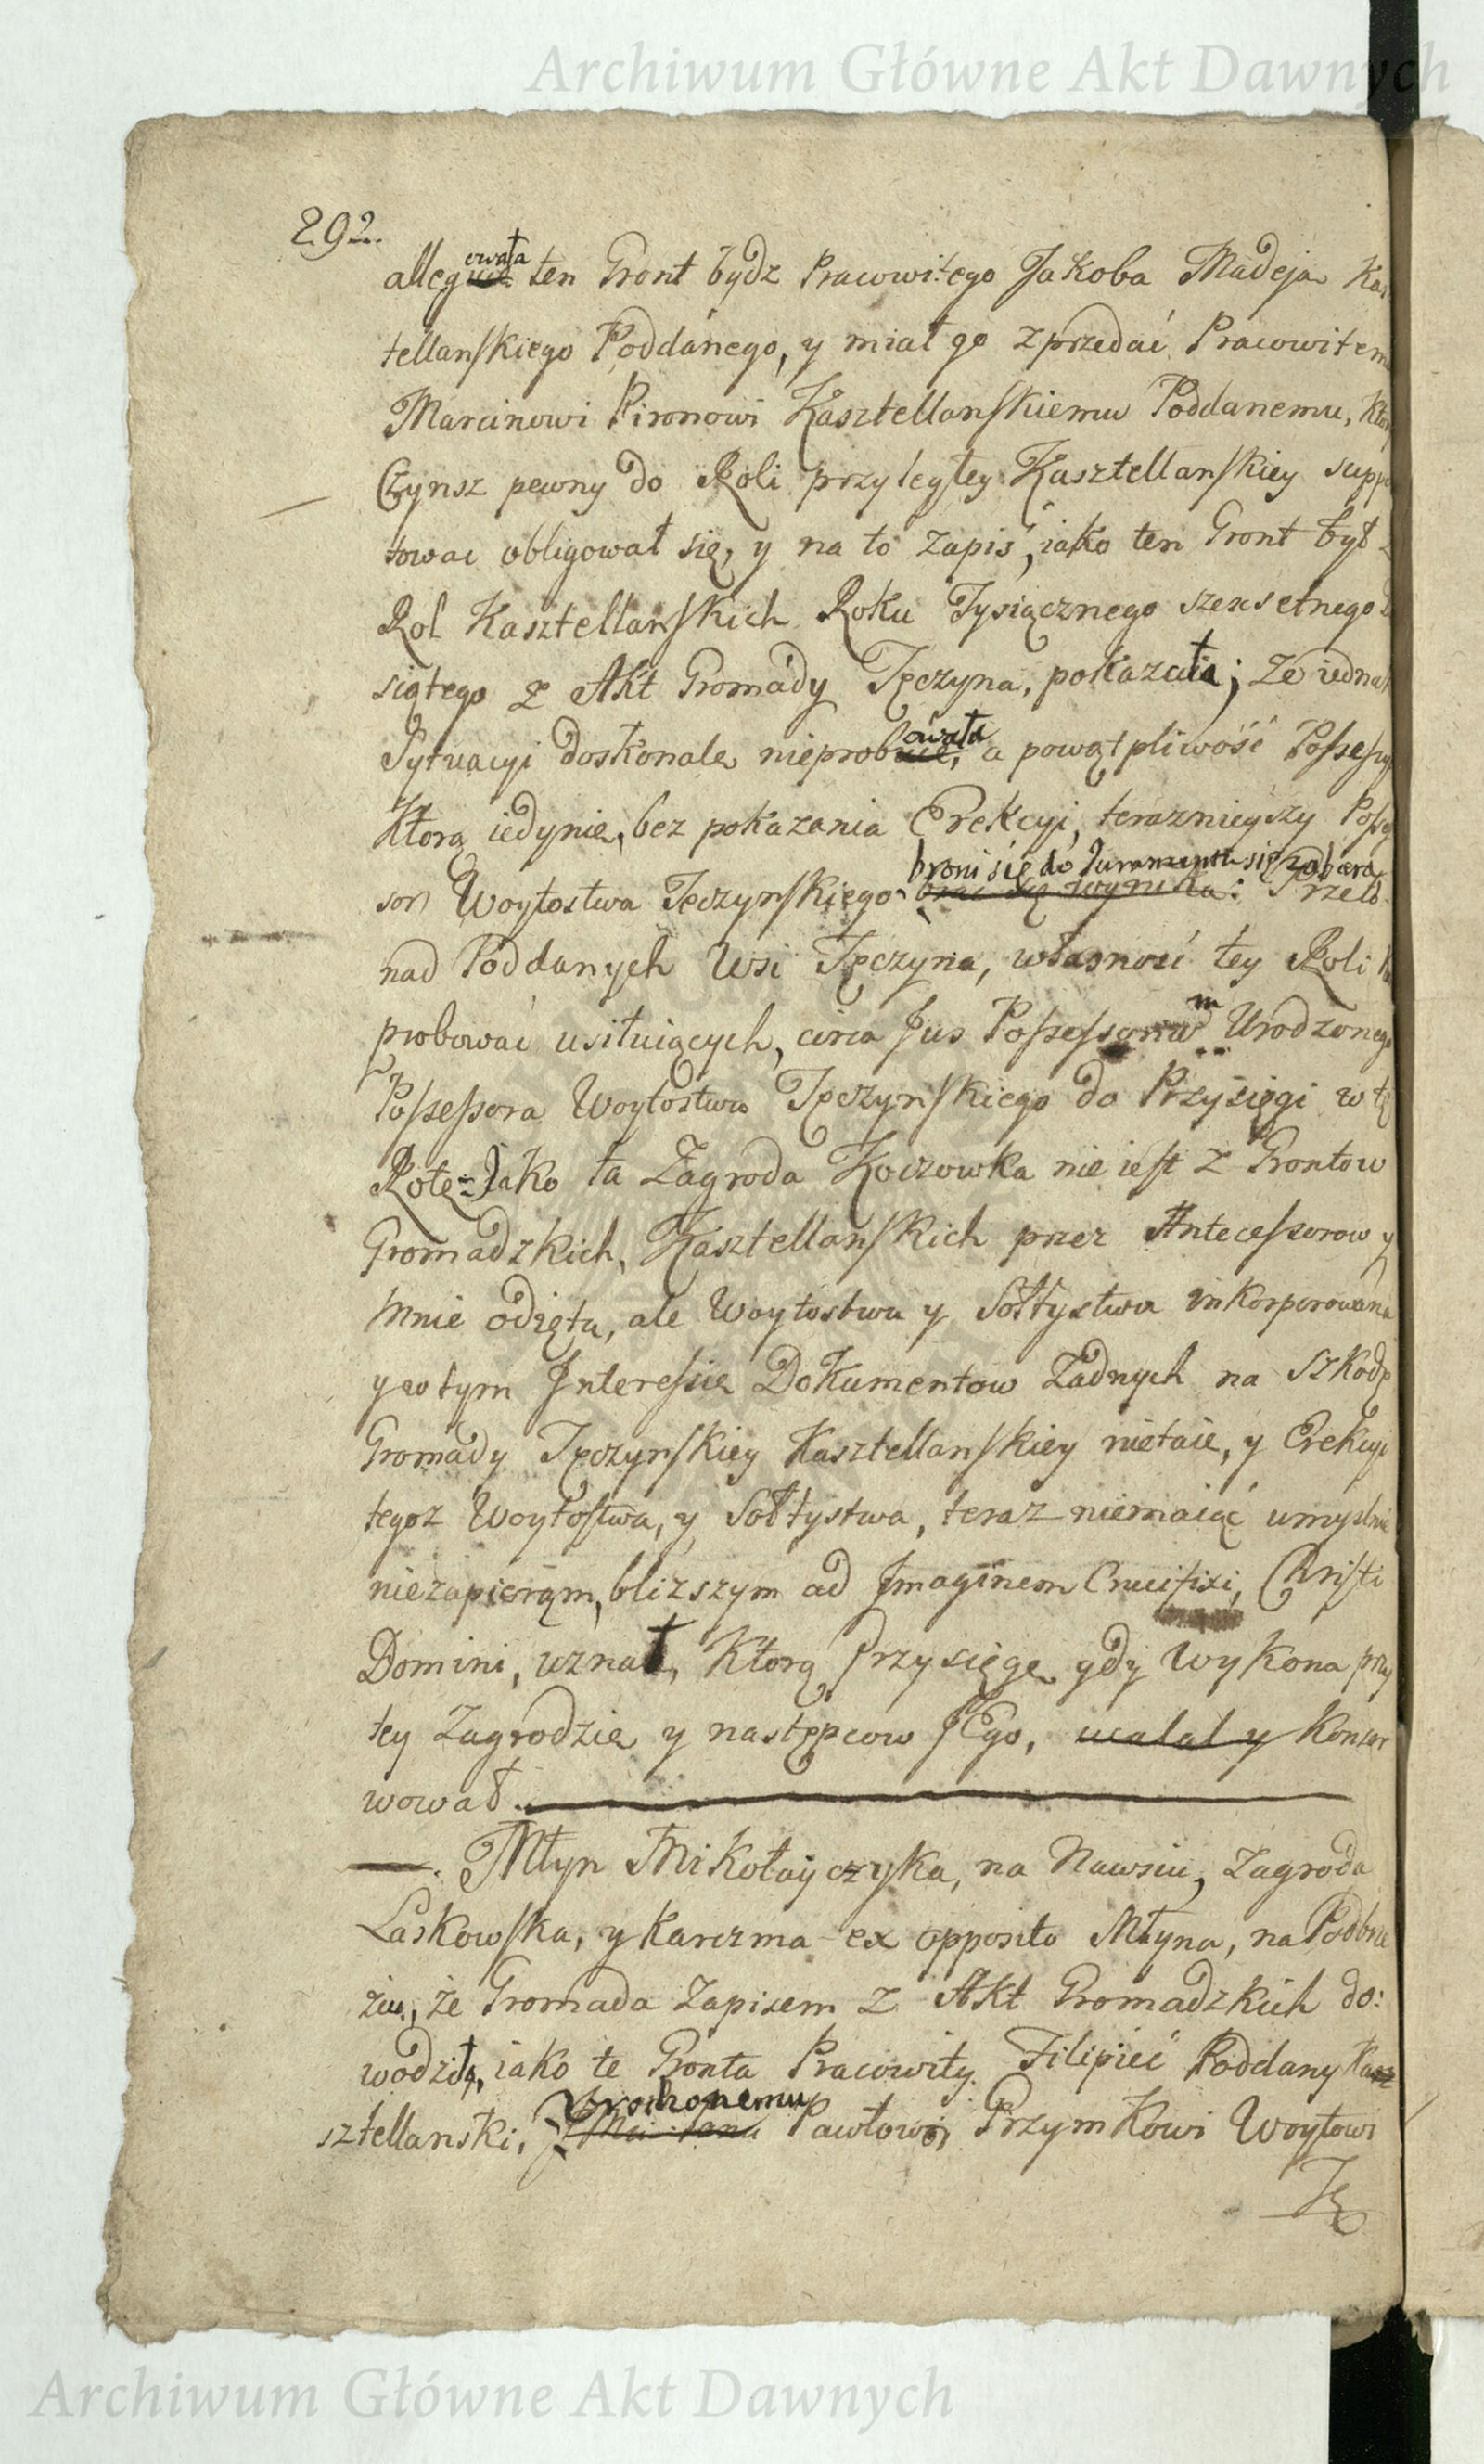 Archiwum Główne Akt Dawnych
292.
owała
alleguie ten Gront bydz Pracowitego Jakoba Madeja Kas
tellanskiego Poddanego, y miał go zprzedać Pracowitemu
Marcinowi Pironowi Kasztellanskiemu Poddanemu, Ktor
Czynsz pewny do Roli przyległey Kasztellanskiey suppo
towac obligował się, y na to Zapis, iako ten Gront był z
Rol Kasztellanskich Roku Tysiącznego szescsetnego
siątego z Akt Gromady Tęczyna, pokazała; Ze iednak
Sytuacyi doskonale nieprobuie, a powątpliwość Possessyi
owała
Ktorą iedynie, bez pokazania Erekcyi, teraznieyszy Posses
broni się do Juramentu się zabiera
sor Woytostwa Tęczynskiego Przeto
nad Poddanych Wsi Tęczyna, własność tey Roli
probować usiłuiących, circa Jus Possessorium Urodzonego
Possessora Woytostwa Tęczynskiego do Przysięgi w tę
Rotę: Jako ta Zagroda Koczowka nie iest z Grontow
Gromadzkich, Kasztellanskich przez Antecessorow y
mnie odięta, ale Woytostwu y Sołtystwu inkorporowana
y w tym Interessie Dokumentow Zadnych na Szkodę
Gromady Tęczynskiey Kasztellanskiey nietaie, y Erekcyi
tegoz Woytostwa, y Sołtystwa, teraz niemaiąc umyslnie
niezapieram, bliższym ad Imaginem Crucifixi, Christi
Domini, uznał, Ktorą Przysięgę gdy wykona przy
tey Zagrodzie y następcow JEgo, ucalał y konser
wował.
Młyn Mikołayczyka, na Nawsiu, Zagroda
Laskowska, y Karczma ex opposito Młyna, na Podbrze
żu, że Gromada Zapisem z Akt Gromadzkich do:
wodziła, iako te Gronta Pracowity Filipiec Poddany Kasz
Urodzonemu
sztellanski, Pawłowi Przymkowi Woytowi
Tę
Archiwum Główne Akt Dawnych